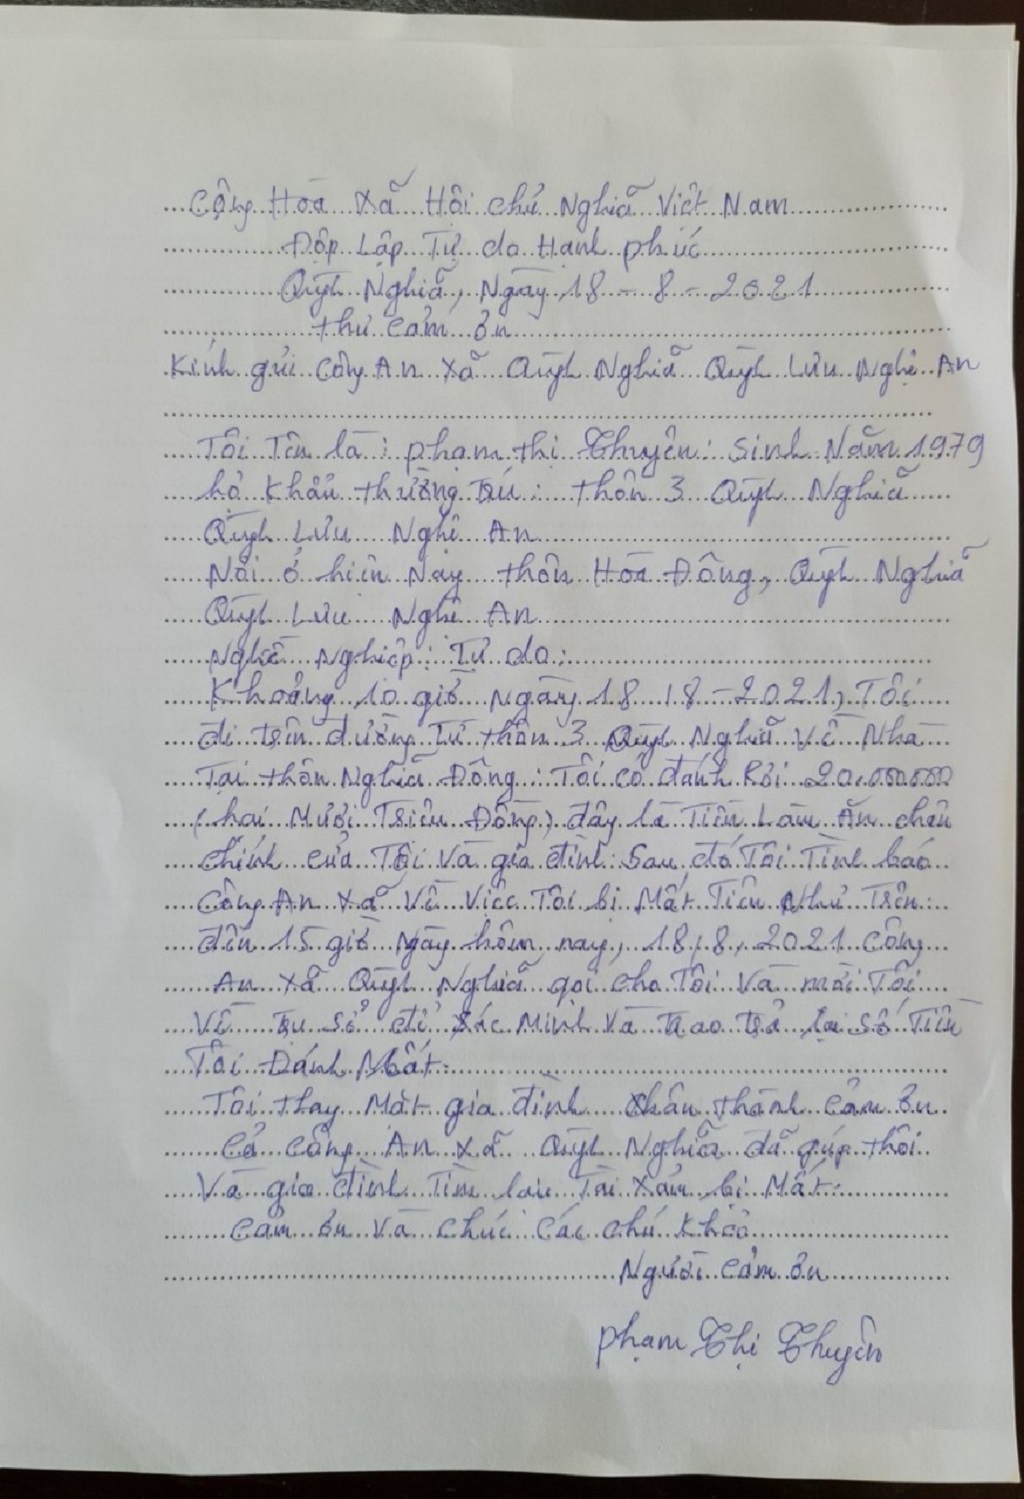 Cộng Hòa Xã Hội chủ Nghĩa Việt Nam
Độp Lập Tự do Hạnh phúc
Quỳh Nghĩa, Ngày 18 - 8 - 2021
thư cảm ơn
Kính gửi Công An xã Quỳh Nghĩa Quỳh Lưu Nghệ An
Tôi Tên là : phạm thị Thuyên : Sinh Năm 1979
hộ Khẩu thường trú : thôn 3 Quỳh Nghĩa
Quỳh Lưu Nghệ An
Nơi ở hiện Nay thôn Hòa Đông, Quỳh Nghĩa
Quỳh Lưu Nghệ An
Nghề Nghiệp : Tự do :
Khoảng 10 giờ Ngày 18 / 8 - 2021, Tôi
đi trên đường Từ thôn 3 Quỳh Nghĩa về Nhà
Tại thôn Nghĩa Đông : Tôi có đánh Rơi 20.000.000
(hai Mươi Triệu Đồng) đây là Tiền Làm Ăn chân
chính của Tôi và gia đình. Sau đó Tôi Trình báo
Công An xã về việc Tôi bị Mất Tiền Như Trên :
đến 15 giờ Ngày hôm nay, 18/8, 2021 Công
An xã Quỳh Nghĩa gọi cho Tôi và mời Tôi
về trụ sở để xác Minh và trao trả lại số Tiền
Tôi Đánh Mất.
Tôi thay Mặt gia đình chân thành cảm ơn
Cả công An xã Quỳh Nghĩa đã giúp thôi
và gia đình Tìm lại Tài xản bị Mất.
cảm ơn và chúc các chú khỏe
Người cảm ơn
phạm Thị Thuyên